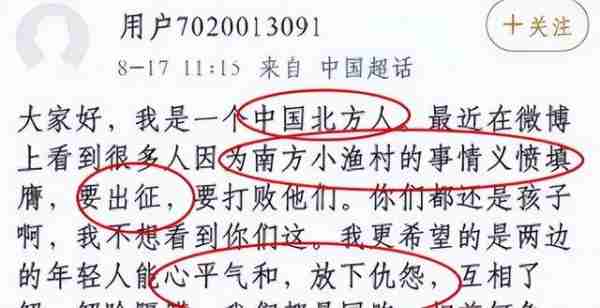 用户7020013091
+关注
8-17 11:15 来自 中国超话
大家好，我是一个中国北方人。最近在微博
上看到很多人因为南方小渔村的事情义愤填
膺，要出征，要打败他们。你们都还是孩子
啊，我不想看到你们这。我更希望的是两边
的年轻人能心平气和，放下仇怨，互相了